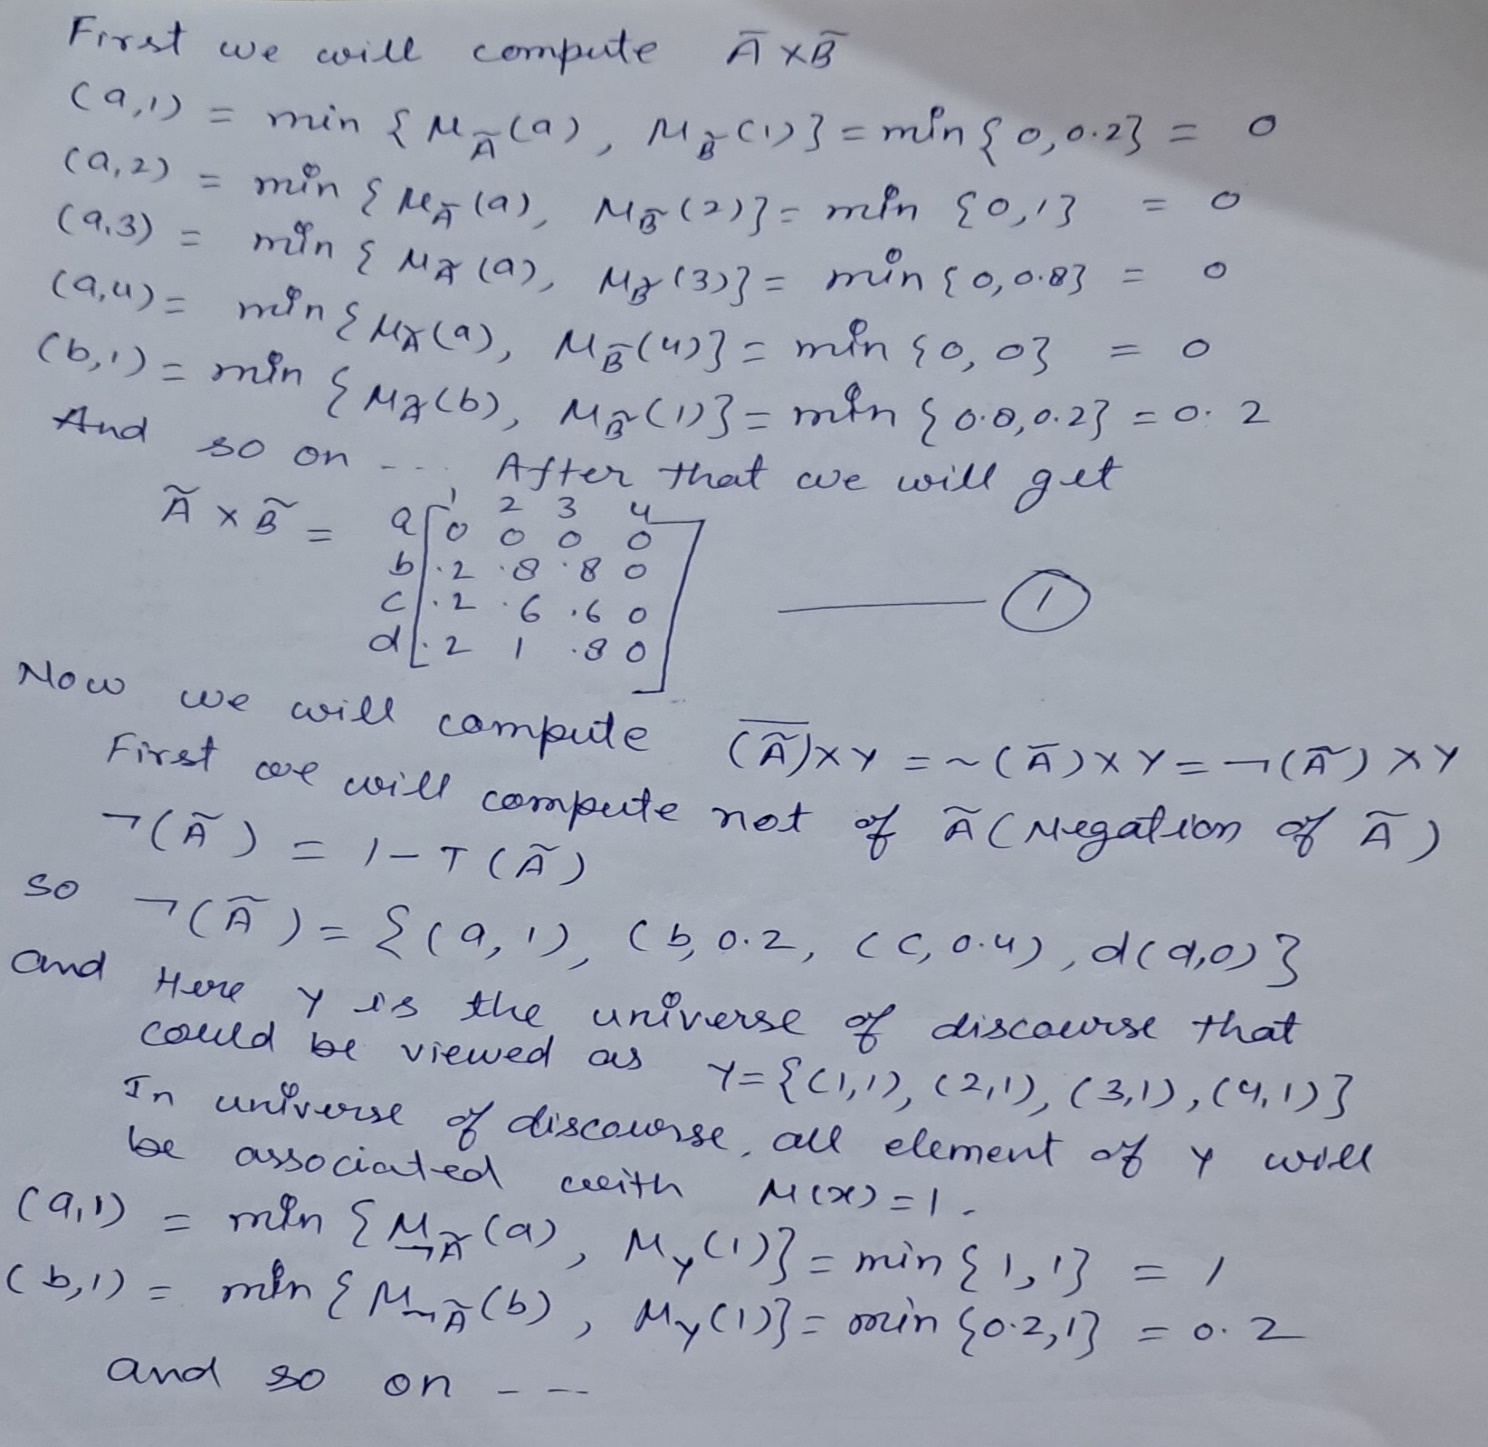 First we will compute Ā × B̃
(a,1) = min { μ_Ã(a), μ_B̃(1)} = min{0,0.2} = 0
(a,2) = min { μ_Ã(a), μ_B̃(2)} = min {0,1} = 0
(a,3) = min { μ_Ã(a), μ_B̃(3)} = min {0,0.8} = 0
(a,4) = min { μ_Ã(a), μ_B̃(4)} = min {0,0} = 0
(b,1) = min { μ_Ã(b), μ_B̃(1)} = min {0.8,0.2} = 0.2
And so on ---. After that we will get
1 2 3 4
Ã × B̃ = a [0 0 0 0
b .2 .8 .8 0
c .2 .6 .6 0 —— ①
d .2 1 .8 0]
Now we will compute (Ã)‾ × Y = ~(Ā) × Y = ¬(Ã) × Y
First we will compute not of Ã (Negation of Ã)
¬(Ã) = 1 - T(Ã)
so ¬(Ã) = {(a,1), (b,0.2, (c,0.4), d(d,0)}
and Here Y is the universe of discourse that
could be viewed as Y = {(1,1), (2,1), (3,1), (4,1)}
In universe of discourse, all element of Y will
be associated with μ(x) = 1.
(a,1) = min { μ_¬Ã(a), μ_Y(1)} = min {1,1} = 1
(b,1) = min { μ_¬Ã(b), μ_Y(1)} = min {0.2,1} = 0.2
and so on ---